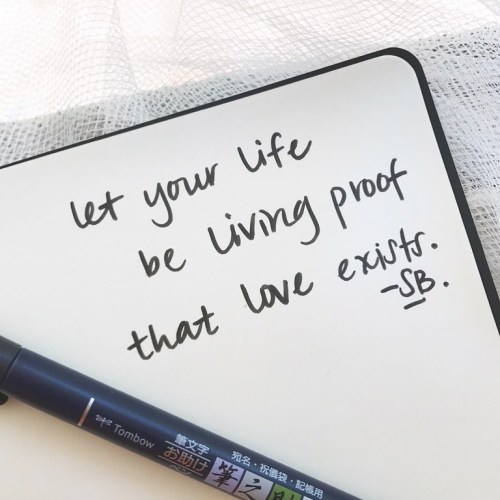 let your life
be living proof
that love exists.
-SB.
Tombow
筆文字
お助け
ペン
宛名・祝儀袋・記帳用
筆之